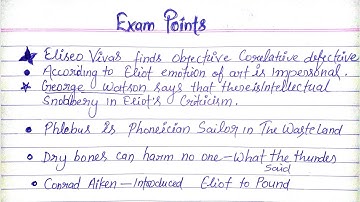 Exam Points
★ Eliseo Vivas finds objective Corelative defective
• According to Eliot emotion of art is impersonal.
☆ George Watson says that there is Intellectual
Snobbery in Eliot's Criticism.
• Phlebus is Phoneician Sailor in The Waste Land
• Dry bones can harm no one – What the thunder
Said
• Conrad Aiken – Introduced Eliot to Pound